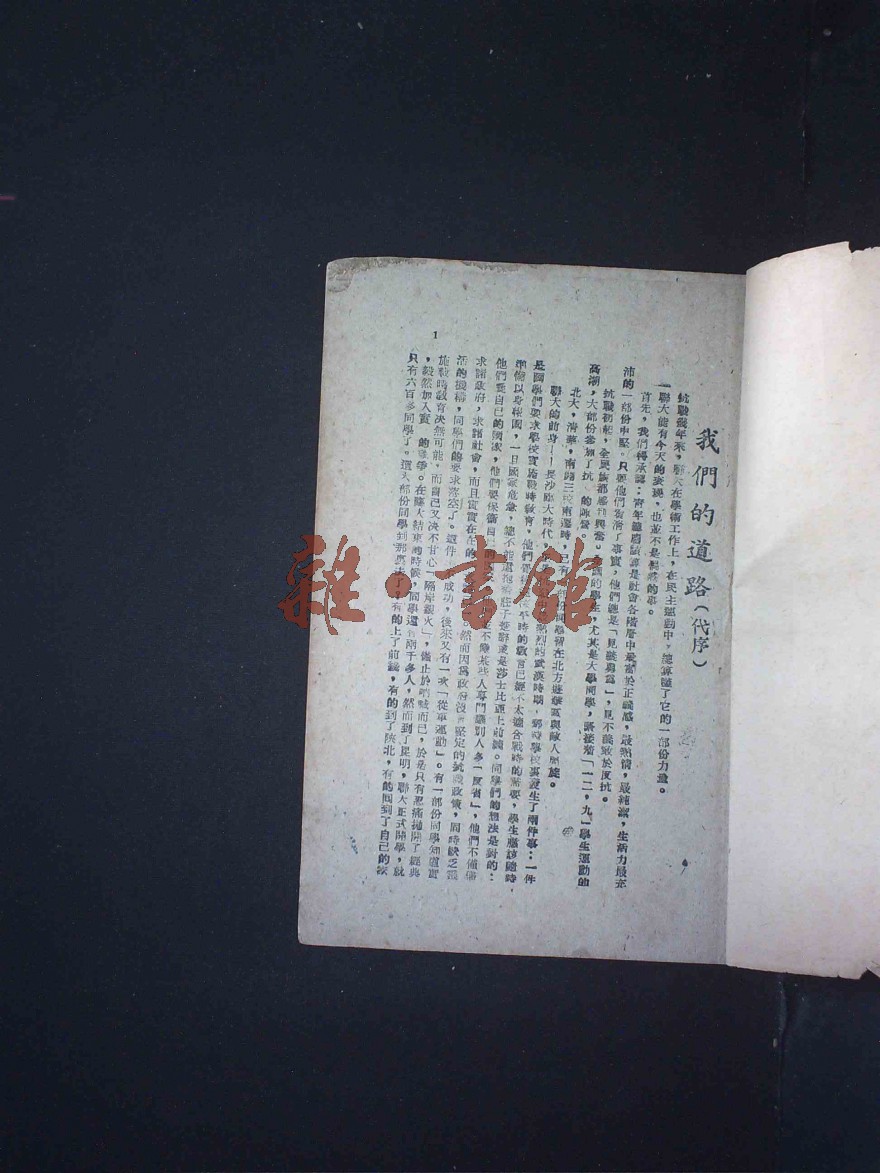 我們的道路(代序)
抗戰幾年來,聯大在學術工作上,在民主運動中,總算盡了它的一部份力量。
聯大能有今天的表現,也並不是偶然的事。
首先,我們得承認:青年總應該算是社會各階層中最富於正義感,最熱情,最純潔,生活力最充
沛的一部份中堅。只要他們看清了事實,他們總是「見義勇為」,見不義敢於反抗。
抗戰初起,全民族都感到興奮。 的學生,尤其是大學同學,緊接着「一二,九」學生運動的
高潮,大部份參加了抗 的陣營。
北大,清華,南開三校南遷時,已有 部份同學留在北方遊擊區與敵人周旋。
聯大的前身——長沙臨大時代, 熱烈的武漢時期,那時學校裏發生了兩件事:一件
是同學們要求學校實施戰時教育,他們覺得 平時的教育已經不太適合戰時的需要,學生應該隨時
準備以身殉國,一旦國家危急,總不能還抱着莊子楚辭或是莎士比亞上前線。同學們的想法是對的:
他們愛自己的國家,他們要保衛自
求諸政府,求諸社會,而且實實在在的 並不像某些人專門讓別人多「反省」,他們不備
活的機構,同學們的要求落空了。這件 然而因為政府沒有堅定的抗戰政策,同時缺乏靈
施戰時教育決無可能,而自己又決不甘心「隔岸觀火」,僅止於吶喊而已,於是只有忍痛拋開了經典
 成功,後來又有一次「從軍運動」。有一部份同學知道實
,毅然加入實 的戰爭。在臨大結束的時候,同學還有兩千多人,然而到了昆明,聯大正式開學,就
只有六百多同學了。這大部份同學到那裏去了 有的上了前線,有的到了陝北,有的回到了自己的家
1
雜·書館